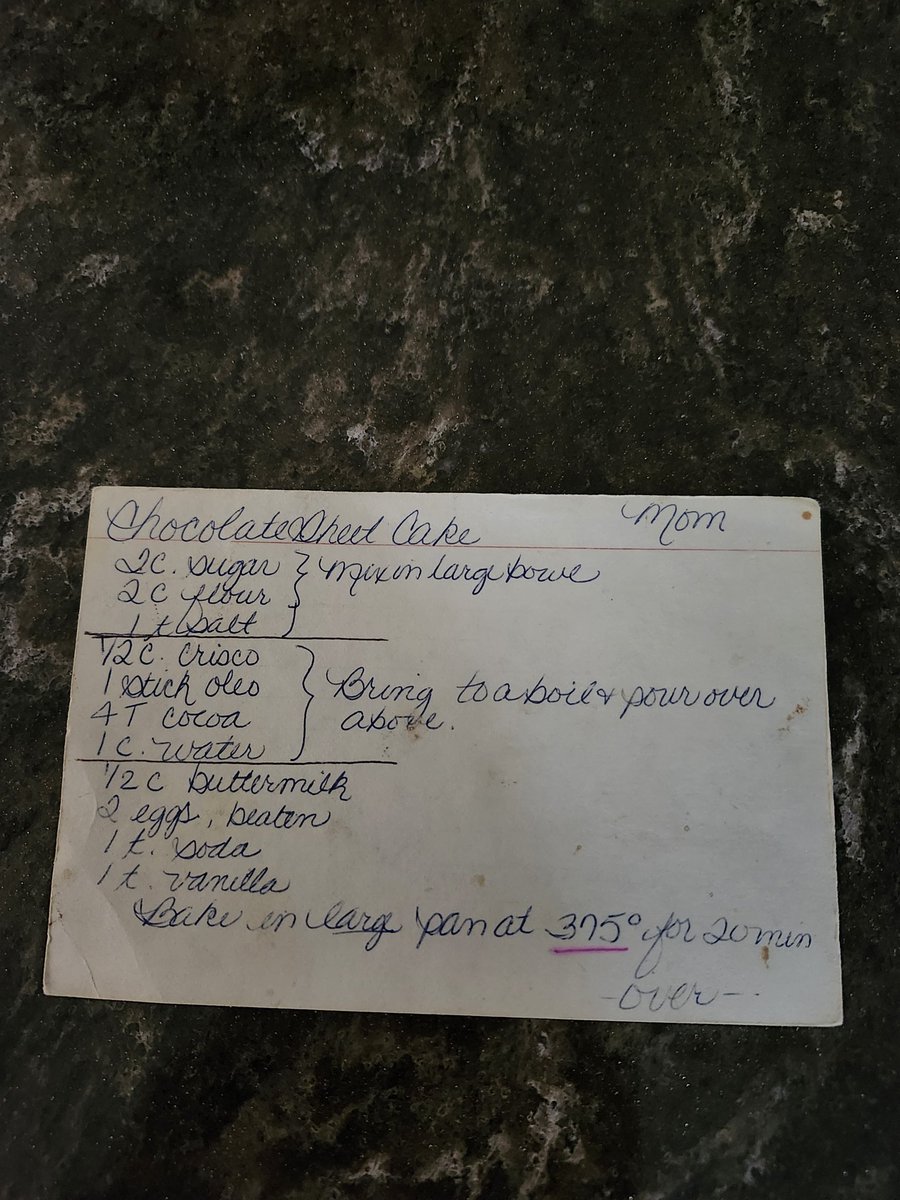 Chocolate Sheet Cake Mom
2 C. sugar } Mix in large bowl
2 C flour
1 t salt
1/2 C. crisco
1 stick oleo } Bring to a boil & pour over
4 T cocoa above.
1 C. water
1/2 C buttermilk
2 eggs, beaten
1 t. soda
1 t. vanilla
Bake in large pan at 375° for 20 min
-over-